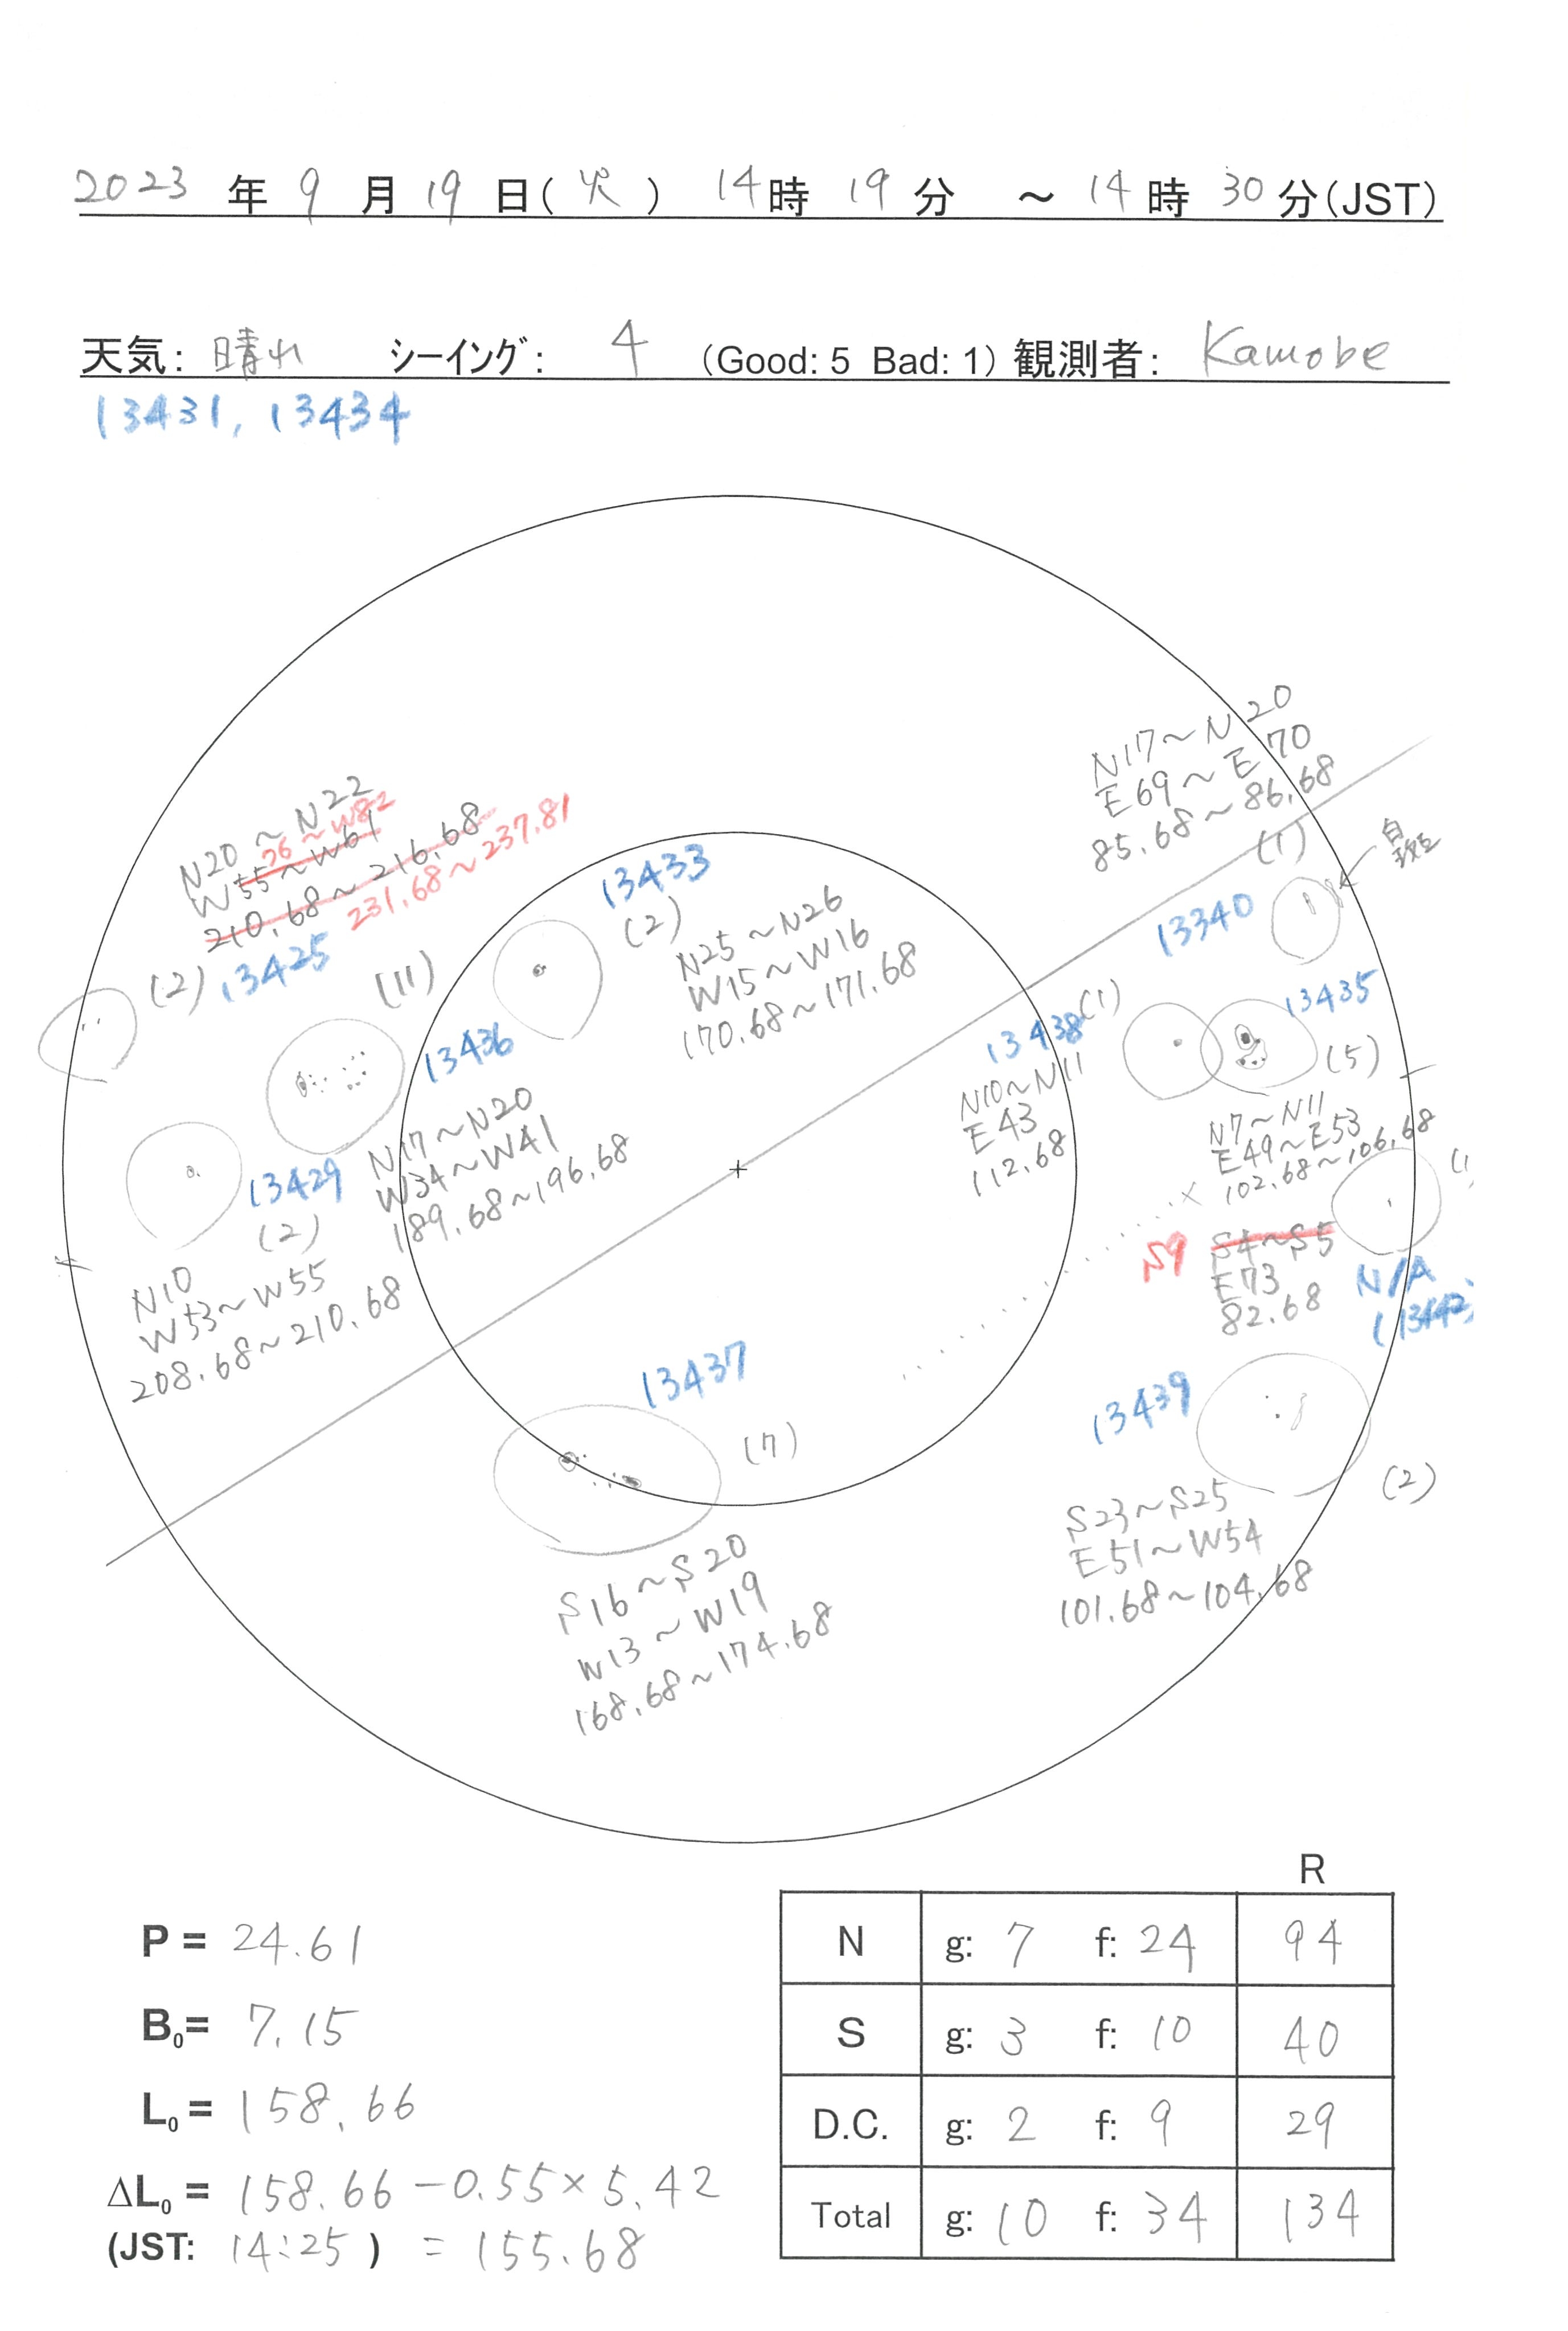 2023 年 9 月 19 日(火) 14時 19分 ～ 14時 30分(JST)
天気: 晴れ シーイング: 4 (Good: 5 Bad: 1) 観測者: Kamobe
13431, 13434
N17～N20
E69～E70
85.68～86.68
(1)
白斑
13340
N20～N22
W55～W61
76～W82
210.68～216.68
231.68～237.81
(2)
13425
(11)
13436
N17～N20
W34～W41
189.68～196.68
13433
(2)
N25～N26
W15～W16
170.68～171.68
13438
(1)
N10～N11
E43
112.68
13435
(5)
N7～N11
E49～E53
102.68～106.68
13429
(2)
N10
W53～W55
208.68～210.68
(1
S9
S4～S5
E73
82.68
N/A
13437
(7)
S16～S20
W13～W19
168.68～174.68
13439
(2)
S23～S25
E51～W54
101.68～104.68
P = 24.61
B₀= 7.15
L₀ = 158.66
ΔL₀ = 158.66 -0.55×5.42
(JST: 14:25 ) = 155.68
R
N g: 7 f: 24 94
S g: 3 f: 10 40
D.C. g: 2 f: 9 29
Total g: 10 f: 34 134